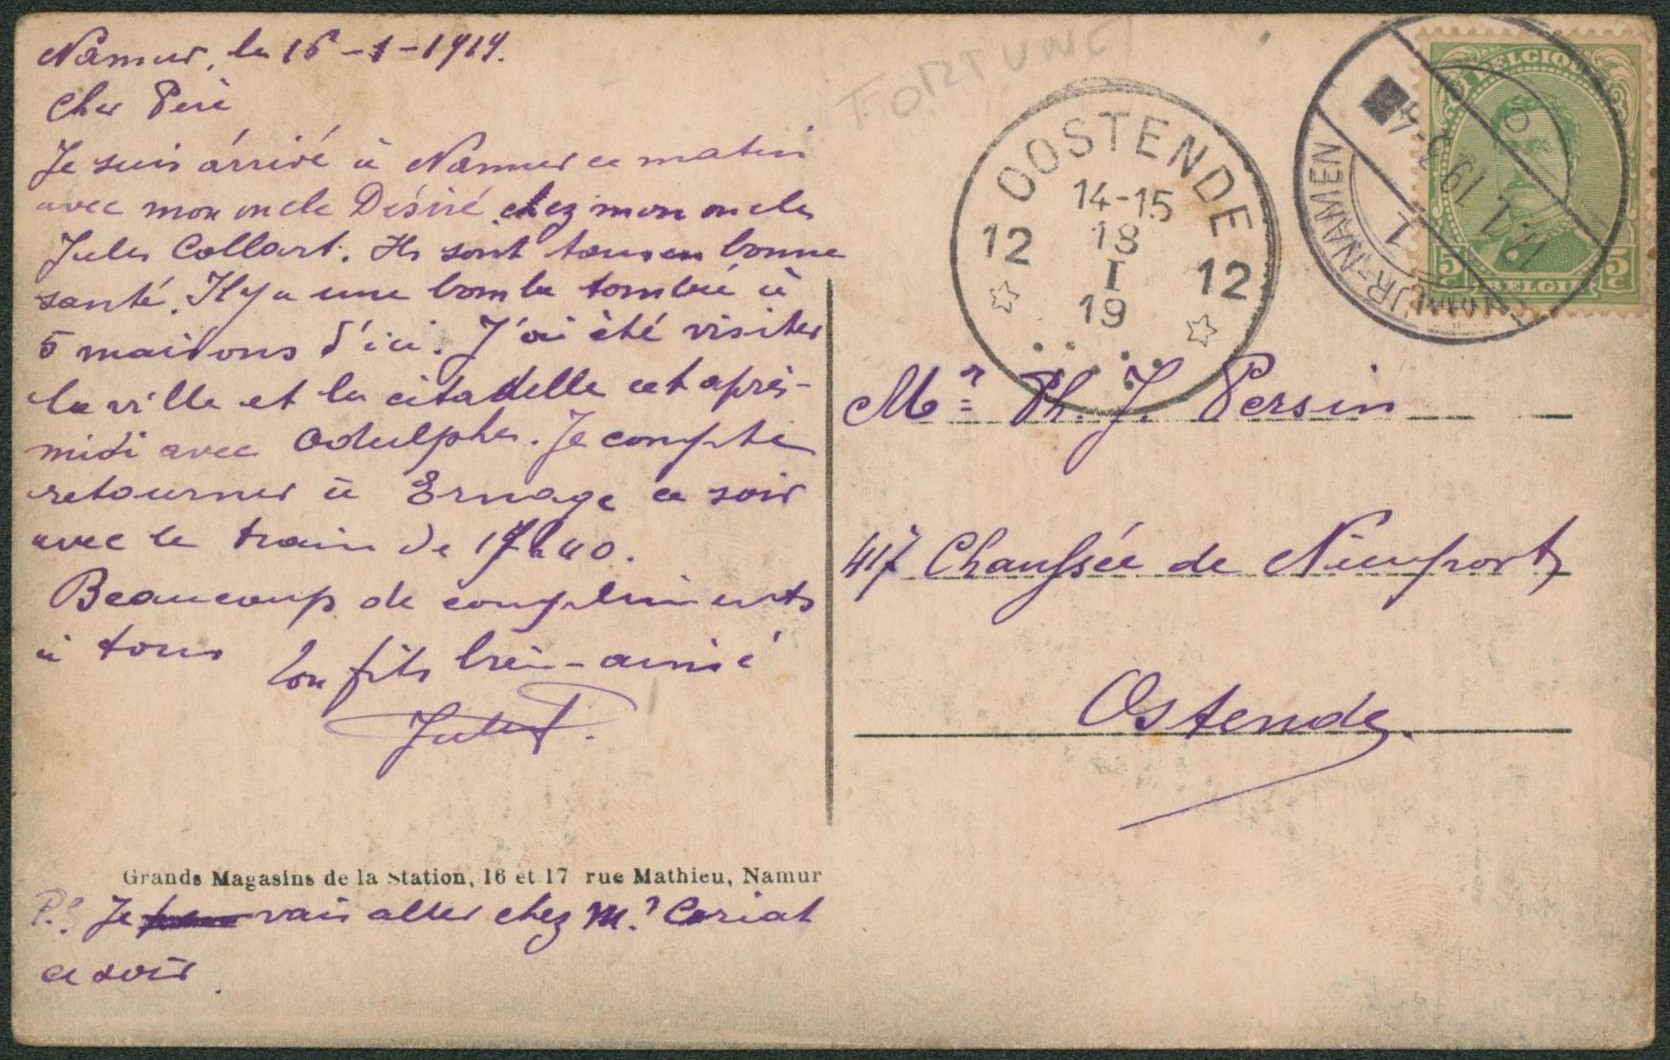 Namur, le 16-1-1919.
Cher Père
Je suis arrivé à Namur ce matin
avec mon oncle Désiré chez mon oncle
Jules Collart. Ils sont tous en bonne
santé. Il y a une bombe tombée à
5 maisons d'ici. J'ai été visiter
la ville et la citadelle cet après-
midi avec Adulphe. Je compte
retourner à Ernage ce soir
avec le train de 17h40.
Beaucoup de compliments
à tous
Ton fils bien-aimé
Jules P.
Grands Magasins de la Station, 16 et 17 rue Mathieu, Namur
P.S. Je vais aller chez Mr Coriat
ce soir.
FORTUNE
OOSTENDE
14-15
12 18 12
I
19
NAMUR-NAMEN
1
BELGIQUE
5c 5c
BELGIE
Mr Ph. J. Persin
417 Chaussée de Nieuport,
Ostende.